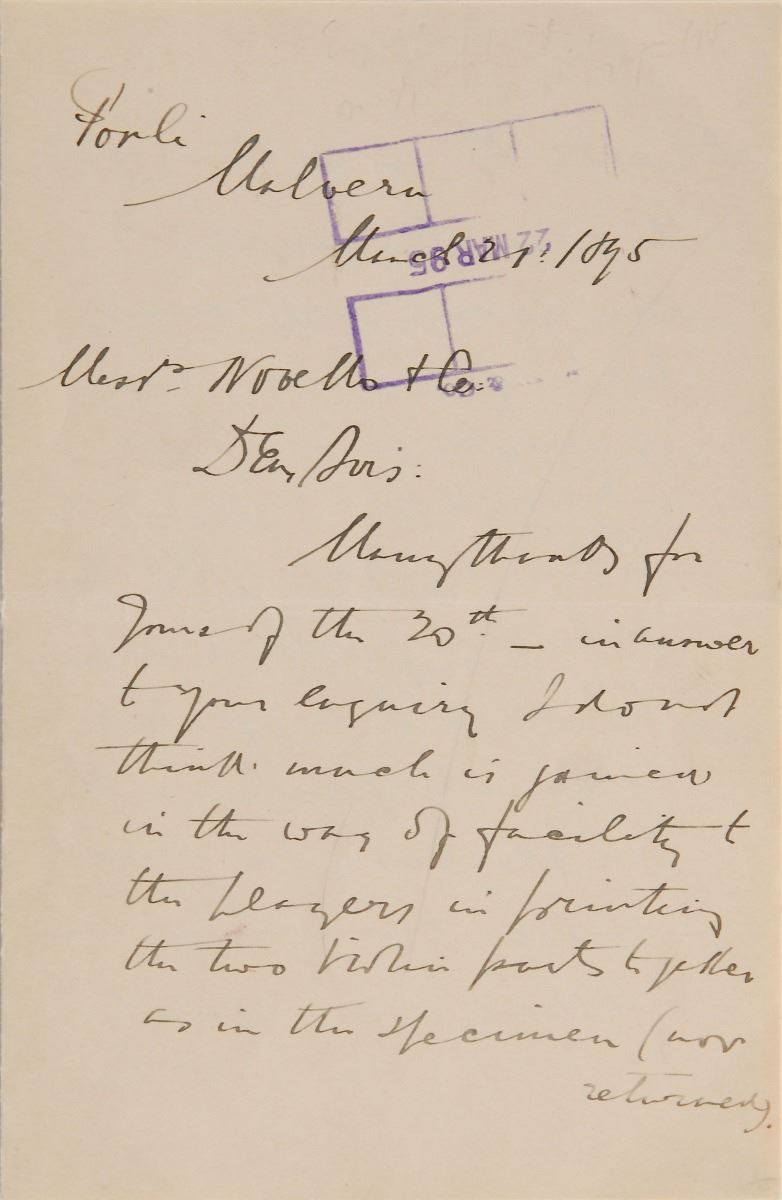 Forli
Malvern
March 21: 1895
22 MAR 95
Messrs. Novello & Co:
Dear Sirs:
Many thanks for
yours of the 20th. — in answer
to your enquiry I do not
think much is gained
in the way of facility to
the players in printing
the two Violin parts together
as in the specimen (now
returned).